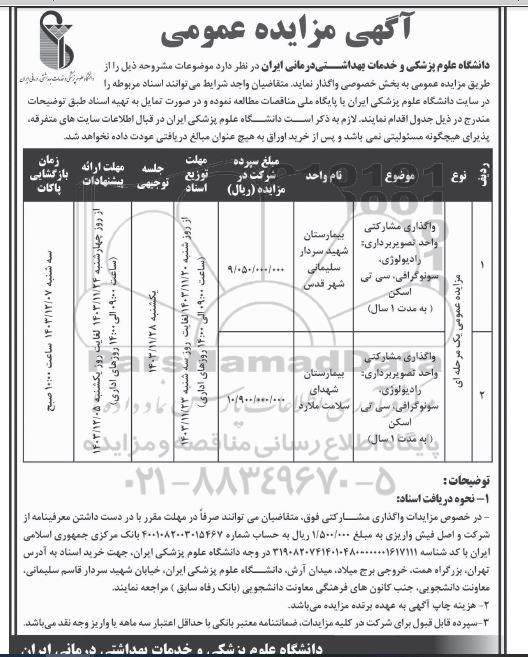 آگهی مزایده عمومی
دانشگاه علوم پزشکی و خدمات بهداشتی درمانی ایران
دانشگاه علوم پزشکی و خدمات بهداشتی‌درمانی ایران در نظر دارد موضوعات مشروحه ذیل را از
طریق مزایده عمومی به بخش خصوصی واگذار نماید. متقاضیان واجد شرایط می‌توانند اسناد مربوطه را
در سایت دانشگاه علوم پزشکی ایران یا پایگاه ملی مناقصات مطالعه نموده و در صورت تمایل به تهیه اسناد طبق توضیحات
مندرج در ذیل جدول اقدام نمایند. لازم به ذکر است دانشگاه علوم پزشکی ایران در قبال اطلاعات سایت های متفرقه،
پذیرای هیچگونه مسئولیتی نمی باشد و پس از خرید اوراق به هیچ عنوان مبالغ دریافتی عودت داده نخواهد شد.
ردیف
نوع
موضوع
نام واحد
مبلغ سپرده شرکت در مزایده (ریال)
مهلت توزیع اسناد
جلسه توجیهی
مهلت ارائه پیشنهادات
زمان بازگشایی پاکات
۱
مزایده عمومی یک مرحله ای
واگذاری مشارکتی
واحد تصویربرداری:
رادیولوژی،
سونوگرافی، سی تی
اسکن
( به مدت ۱ سال)
بیمارستان
شهید سردار
سلیمانی
شهر قدس
۹/۰۵۰/۰۰۰/۰۰۰
از روز شنبه ۱۴۰۳/۱۱/۲۰ لغایت روز سه شنبه ۱۴۰۳/۱۱/۲۳
(ساعت ۰۹:۰۰ الی ۱۴:۰۰ روزهای اداری)
یکشنبه ۱۴۰۳/۱۱/۲۸
از روز چهارشنبه ۱۴۰۳/۱۱/۲۴ لغایت روز یکشنبه ۱۴۰۳/۱۲/۰۵
(ساعت ۰۹:۰۰ الی ۱۴:۰۰ روزهای اداری)
سه شنبه ۱۴۰۳/۱۲/۰۷ ساعت ۱۰:۰۰ صبح
۲
واگذاری مشارکتی
واحد تصویربرداری:
رادیولوژی،
سونوگرافی، سی تی
اسکن
( به مدت ۱ سال)
بیمارستان
شهدای
سلامت ملارد
۱۰/۹۰۰/۰۰۰/۰۰۰
ParsNamadData
پایگاه اطلاع رسانی مناقصه و مزایده
۰۲۱-۸۸۳۴۹۶۷۰-۵
توضیحات :
۱- نحوه دریافت اسناد:
- در خصوص مزایدات واگذاری مشارکتی فوق، متقاضیان می توانند صرفاً در مهلت مقرر با در دست داشتن معرفینامه از
شرکت و اصل فیش واریزی به مبلغ ۱/۵۰۰/۰۰۰ ریال به حساب شماره ۴۰۰۱۰۸۲۰۰۳۰۱۵۴۶۷ بانک مرکزی جمهوری اسلامی
ایران با کد شناسه ۳۱۹۰۸۲۰۷۴۱۴۰۱۰۴۸۰۰۰۰۰۰۰۱۶۱۷۱۱۱ در وجه دانشگاه علوم پزشکی ایران، جهت خرید اسناد به آدرس
تهران، بزرگراه همت، خروجی برج میلاد، میدان آرش، دانشگاه علوم پزشکی ایران، خیابان شهید سردار قاسم سلیمانی،
معاونت دانشجویی، جنب کانون های فرهنگی معاونت دانشجویی (بانک رفاه سابق ) مراجعه نمایند.
۲- هزینه چاپ آگهی به عهده برنده مزایده می‌باشد.
۳-سپرده قابل قبول برای شرکت در کلیه مزایدات، ضمانتنامه معتبر بانکی با حداقل اعتبار سه ماهه یا واریز وجه نقد می‌باشد.
دانشگاه علوم پزشکی و خدمات بهداشتی درمانی ایران